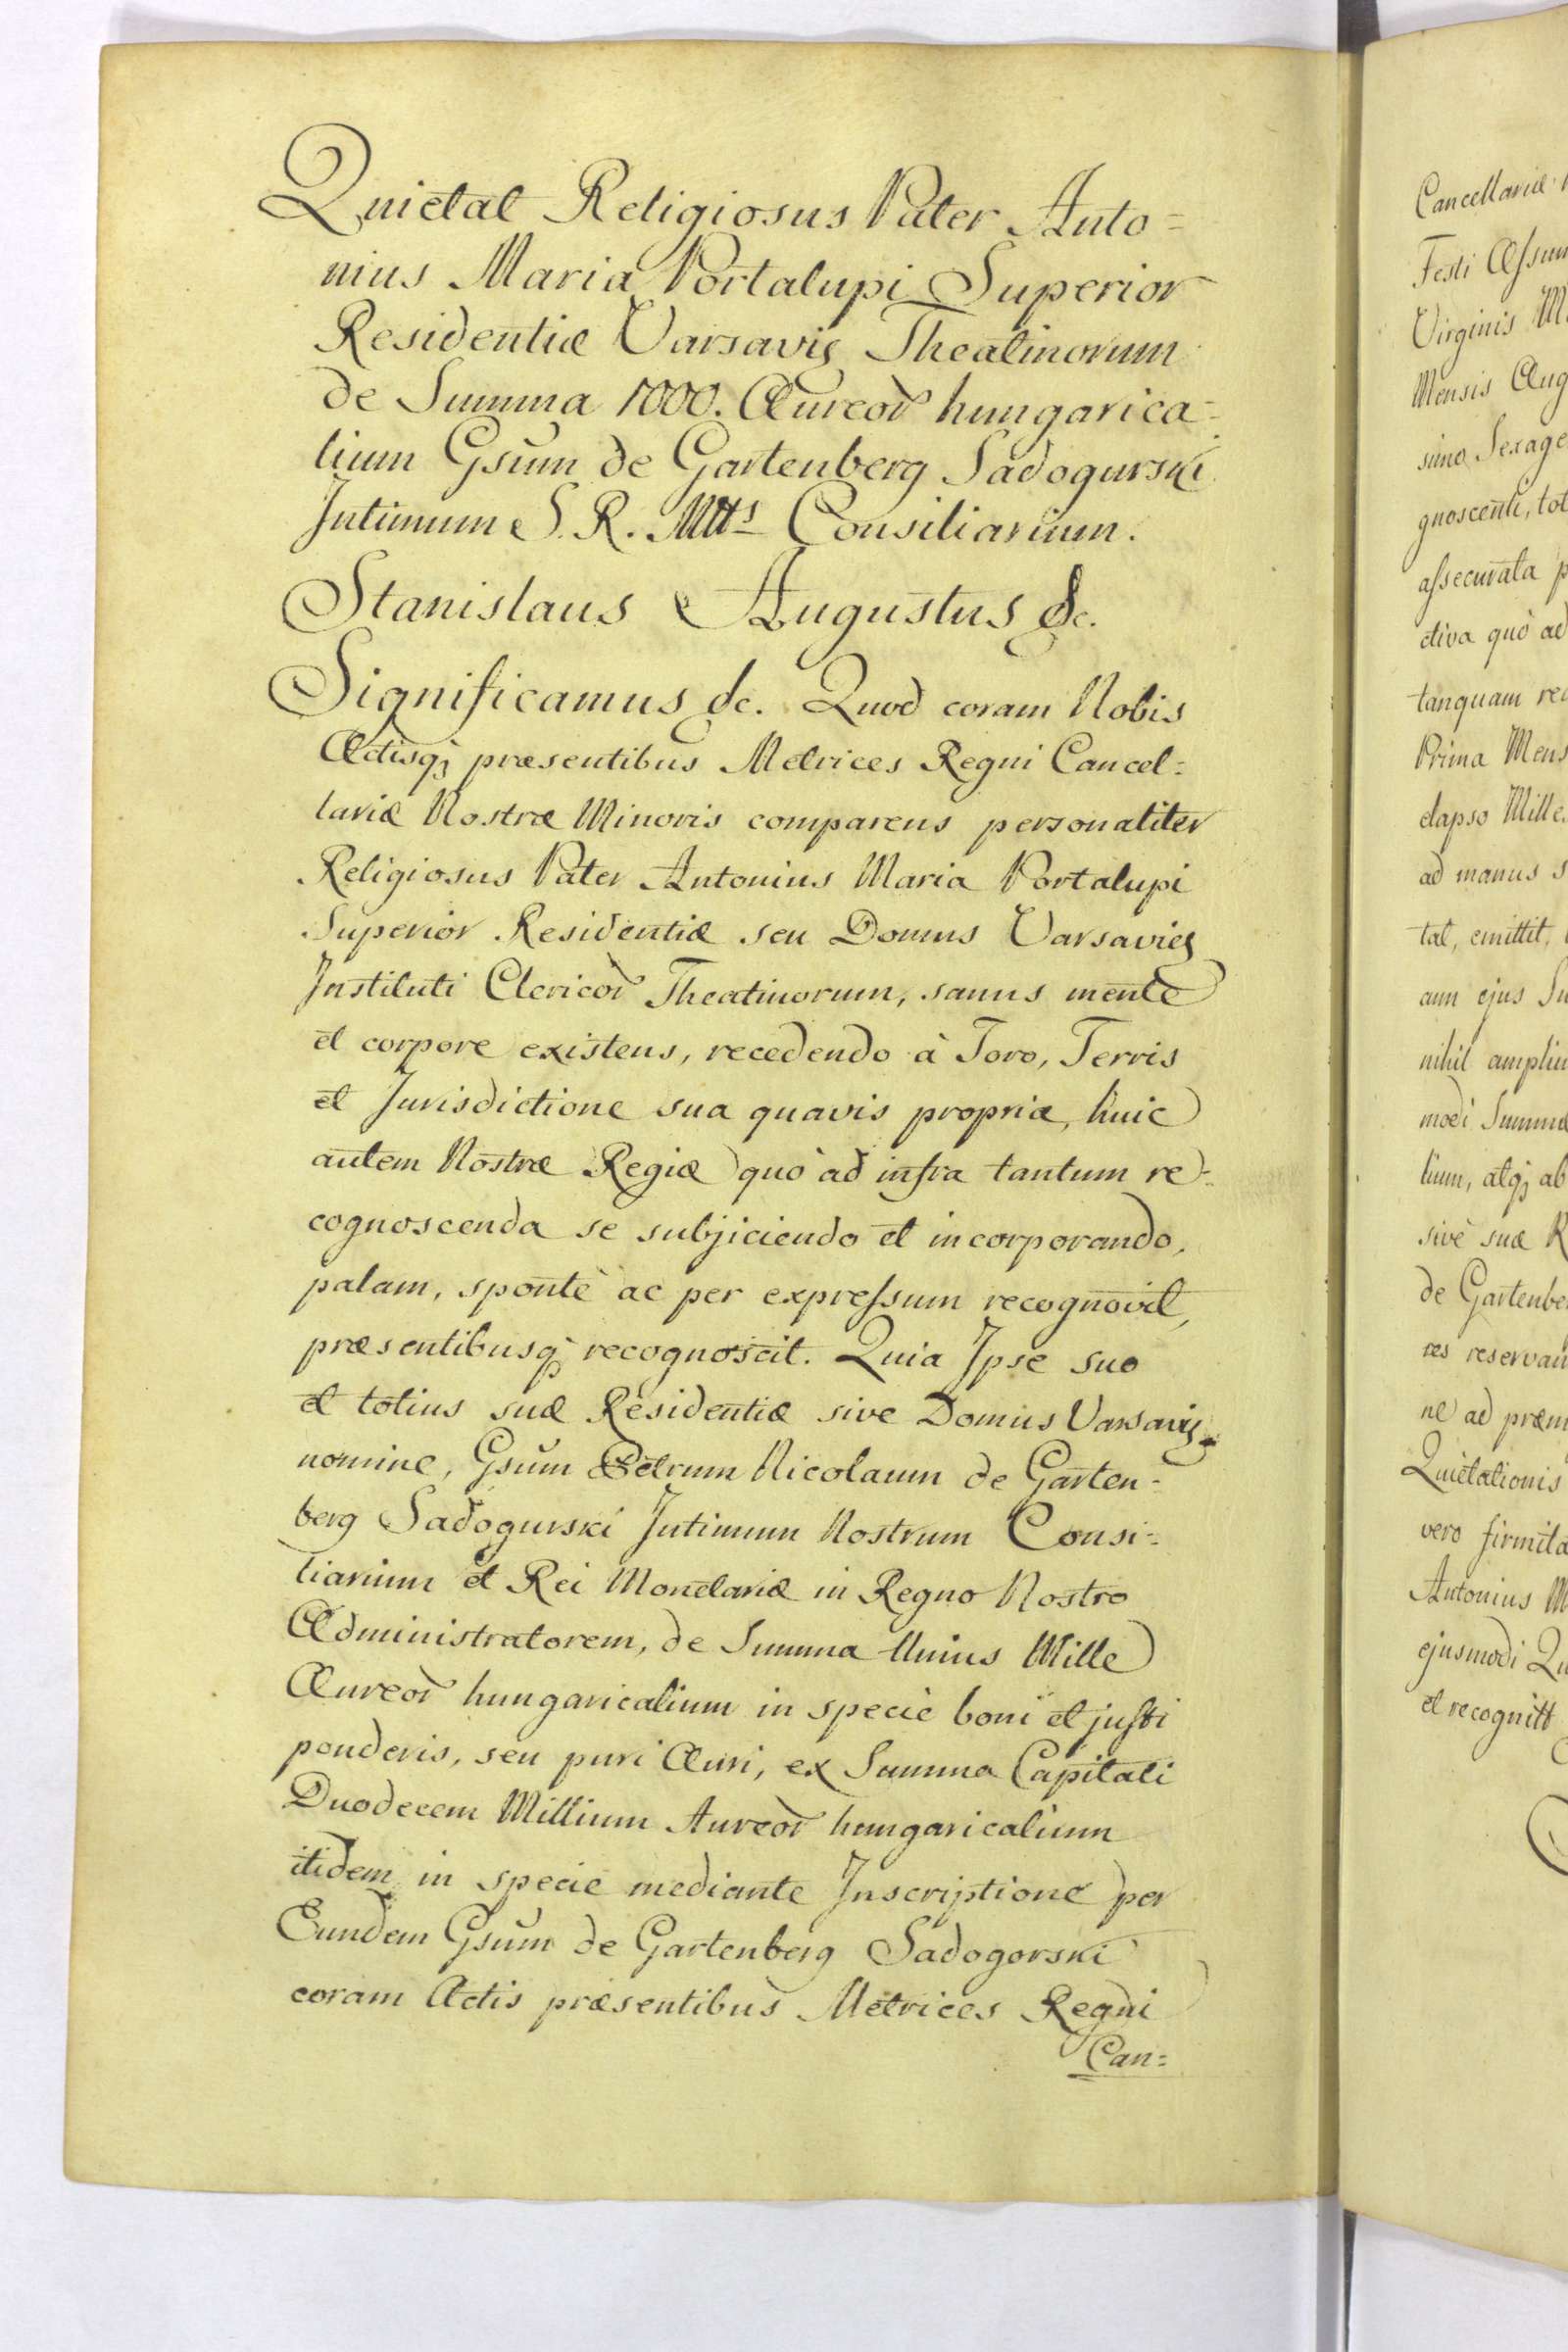 Quietat Religiosus Pater Anto=
nius Maria Portalupi Superior
Residentiæ Varsavięs Theatinorum
de Summa 1000. Aureor̃ hungarica=
lium Gsum de Gartenberg Sadogurski
Intimum S. R. Mtts Consiliarium.
Stanislaus Augustus &c.
Significamus &c. Quod coram Nobis
Actisq; præsentibus Metrices Regni Cancel=
lariæ Nostræ Minoris comparens personaliter
Religiosus Pater Antonius Maria Portalupi
Superior Residentiæ seu Domus Varsavięs
Instituti Clericor̃ Theatinorum, sanus mente
et corpore existens, recedendo à Foro, Terris
et Jurisdictione sua quavis propria, huic
autem Nostræ Regiæ quò ad infra tantum re=
cognoscenda se subjiciendo et incorporando,
palam, spontè ac per expressum recognovit,
præsentibusq; recognoscit. Quia Ipse suo
et totius suæ Residentiæ sive Domus Varsavięs
nomine, Gsum Petrum Nicolaum de Garten=
berg Sadogurski Intimum Nostrum Consi=
liarium et Rei Monetariæ in Regno Nostro
Administratorem, de Summa Unius Mille
Aureor̃ hungaricalium in speciè boni et justi
ponderis, seu puri Auri, ex Summa Capitali
Duodecem Millium Aureor̃ hungaricalium
itidem in specie mediante Inscriptione per
Eundem Gsum de Gartenberg Sadogorski
coram Actis præsentibus Metrices Regni
Can=
Cancellariæ
Festi Assum
Virginis M
Mensis Aug
simo Sexage
gnoscenti, tot
assecurata p
ctiva quò ad
tanquam re
Prima Mens
elapso Mille
ad manus s
tat, emittit,
am ejus Su
nihil ampliu
modi Summæ
lium, atq; ab
sivè suæ R
de Gartenbe
res reservan
ne ad præm
Quietationis
vero firmita
Antonius M
ejusmodi Qu
et recognitt